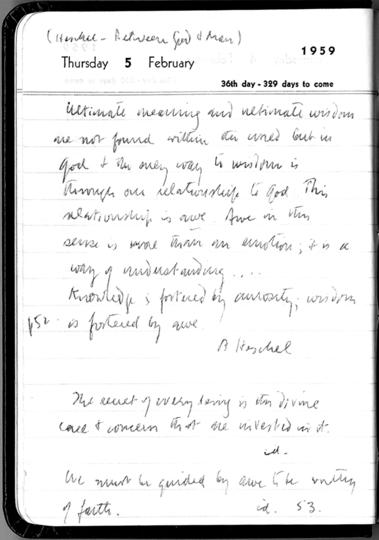 (Heschel - Between God & Man)
1959
Thursday 5 February
36th day - 329 days to come
Ultimate meaning and ultimate wisdom
are not found within the world but in
God & the only way to wisdom is
through our relationship to God This
relationship is awe. Awe in this
sense is more than an emotion; it is a
way of understanding....
Knowledge is fostered by curiosity; wisdom
p52. is fostered by awe.
A Heschel
The secret of every being is the divine
care & concern that are invested in it.
id.
We must be guided by awe to be worthy
of faith. id. 53.